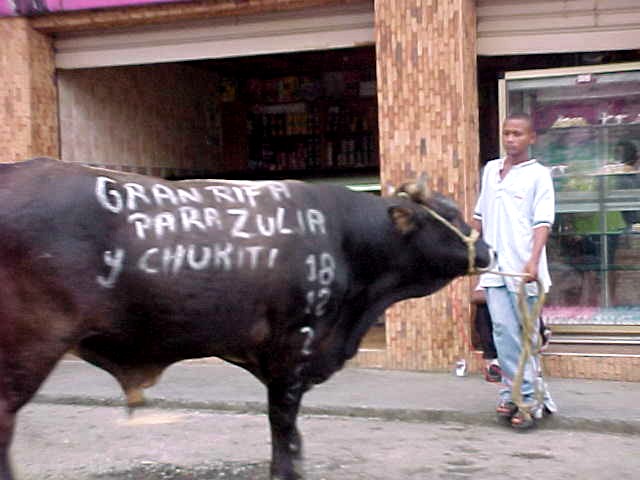 GRAN RIFA
PARA ZULIA
Y CHUKITI
18
12
2